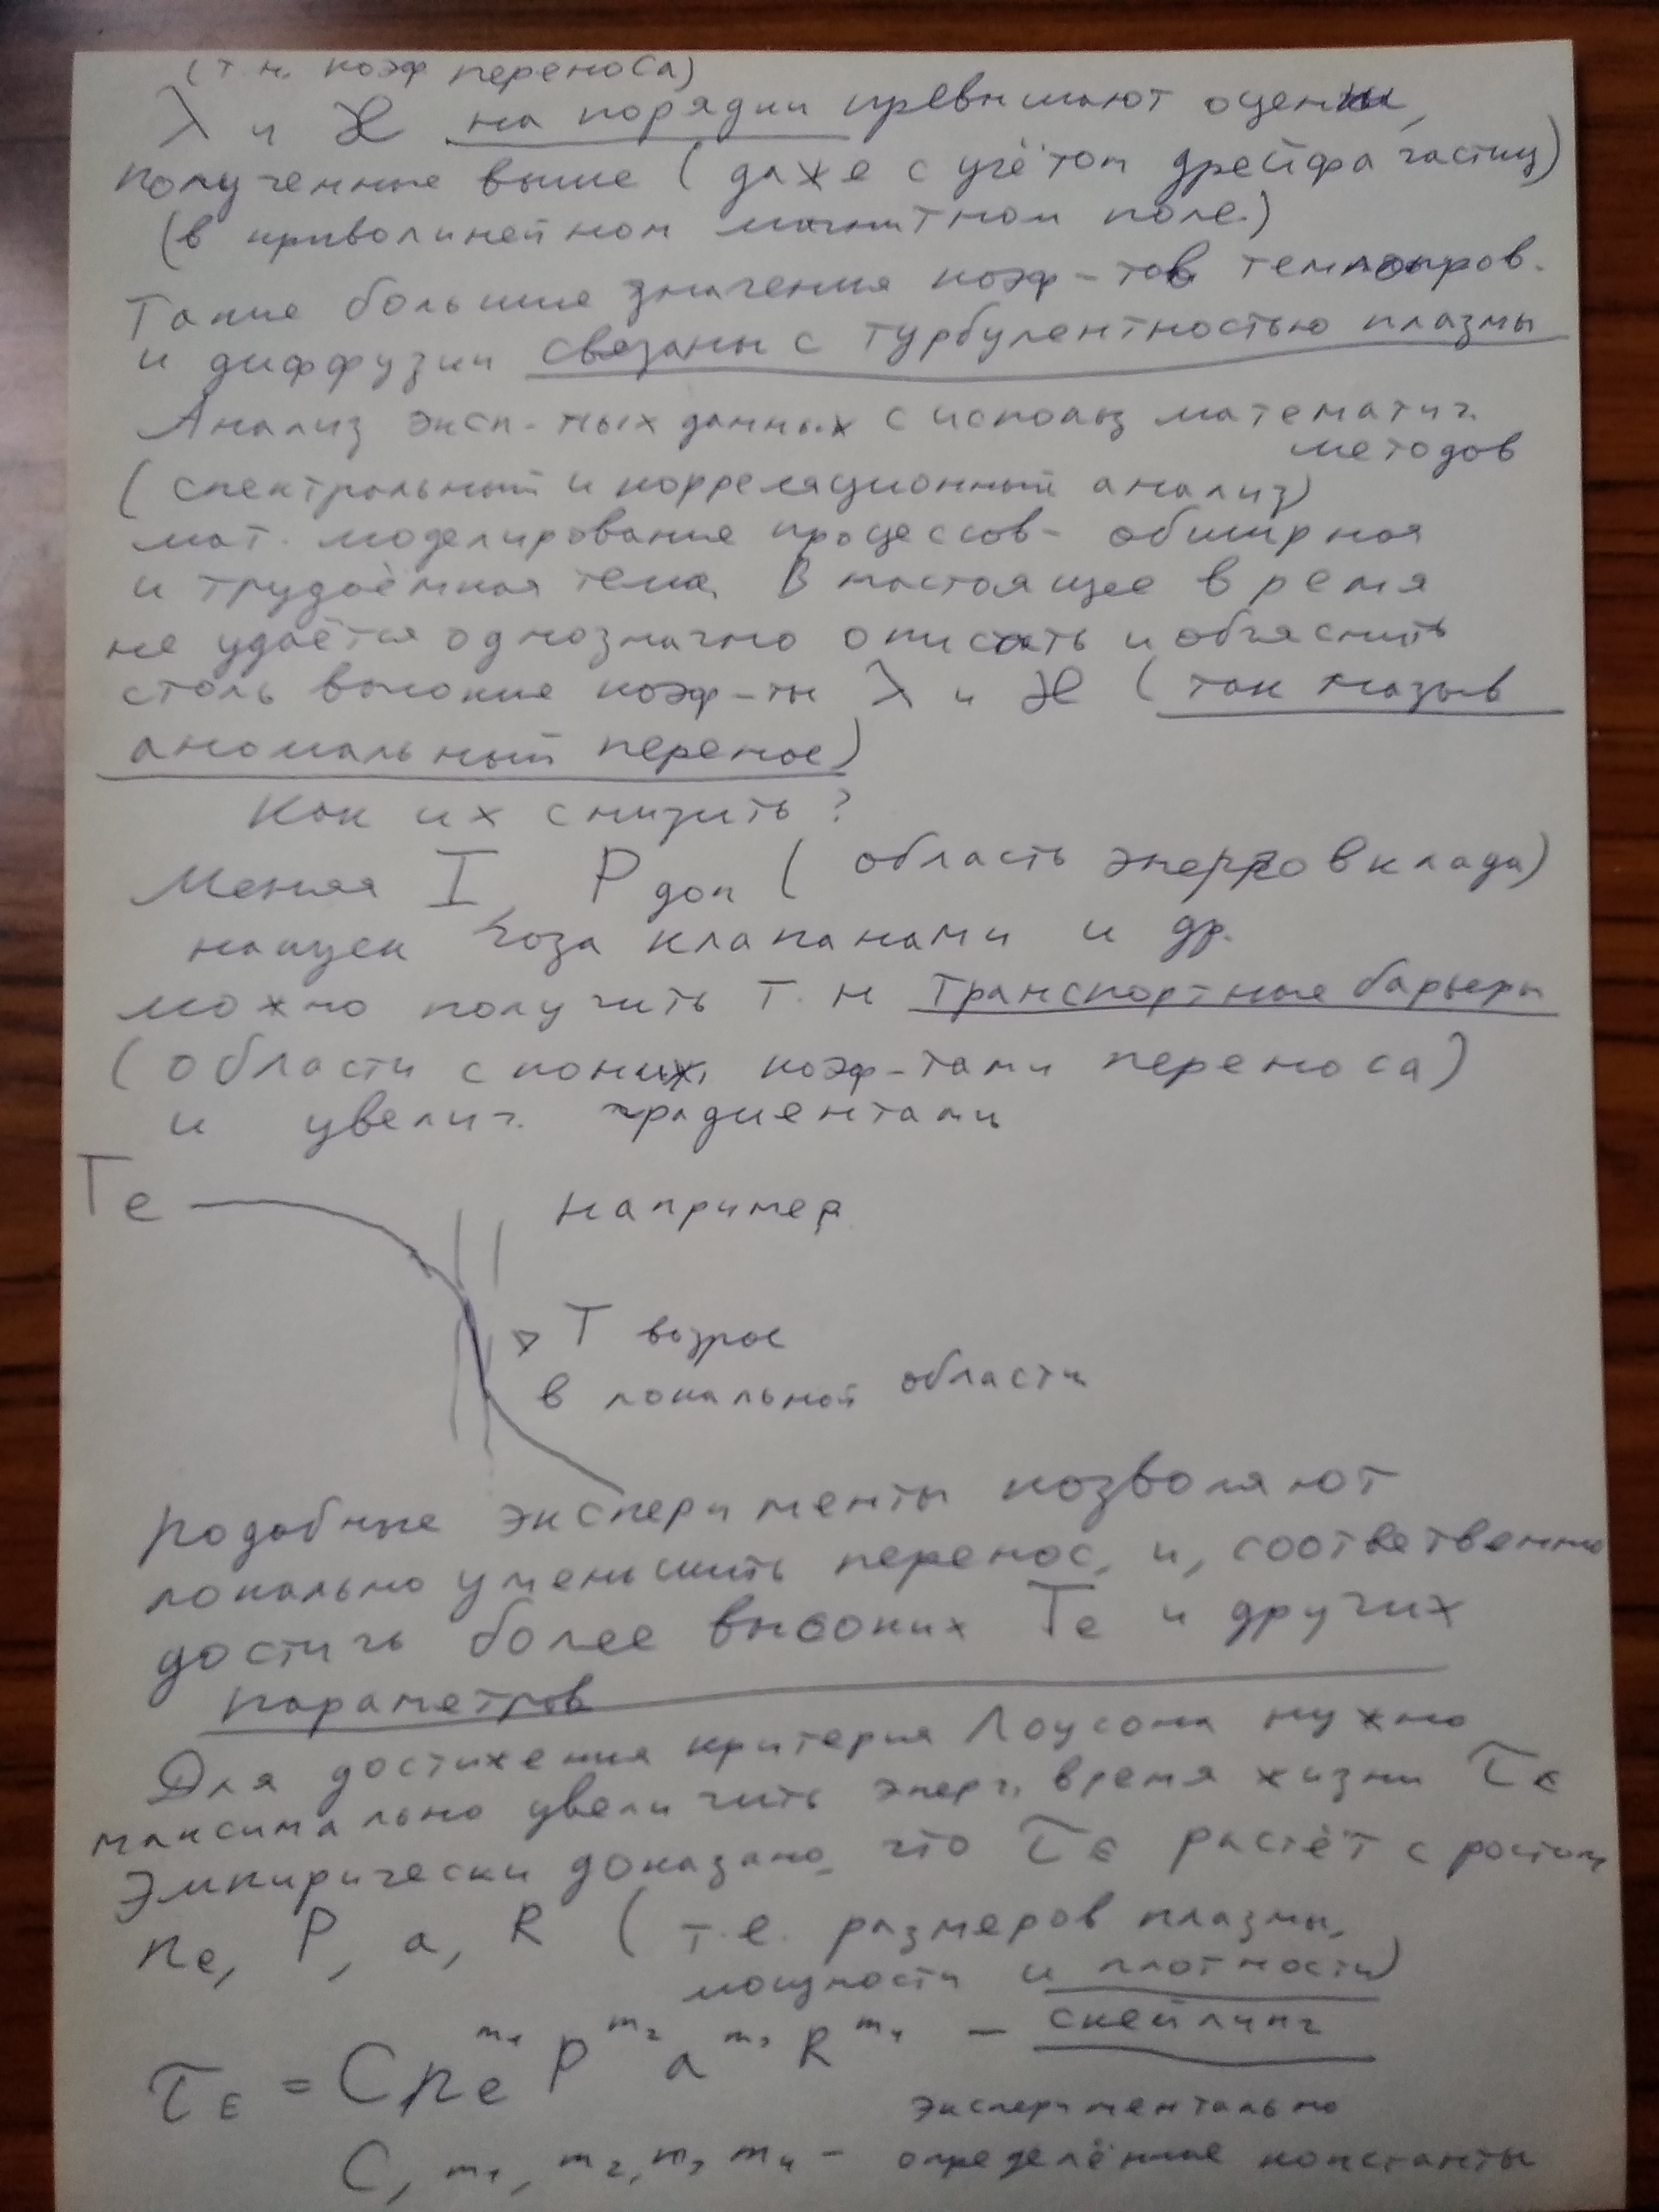 (т.н. коэф переноса)
λ и ϰ на порядки превышают оценки,
полученные выше (даже с учётом дрейфа частиц)
(в криволинейном магнитном поле.)
Такие большие значения коэф-тов теплопров.
и диффузии связаны с турбулентностью плазмы
Анализ эксп-тных данных с использ математич.
методов
(спектральный и корреляционный анализ)
мат. моделирование процессов- обширная
и трудоёмкая тема. В настоящее время
не удаётся однозначно описать и объяснить
столь высокие коэф-ты λ и ϰ (так назыв
аномальный перенос)
Как их снизить?
Меняя I, P доп (область энерговклада)
напуск газа клапанами и др.
можно получить т.н транспортные барьеры
(области с пониж. коэф-тами переноса)
и увелич. градиентами
Te
например
∇ T возрос
в локальной области
Подобные эксперименты позволяют
локально уменьшить перенос, и, соответственно
достичь более высоких Te и других
параметров
Для достижения критерия Лоусона нужно
максимально увеличить энерг. время жизни τE
Эмпирически доказано, что τE растёт с ростом
ne, P, a, R (т.е. размеров плазмы,
мощности и плотности)
τE = C ne^m1 P^m2 a^m3 R^m4 — скейлинг
экспериментально
C, m1, m2, m3 m4 - определённые константы